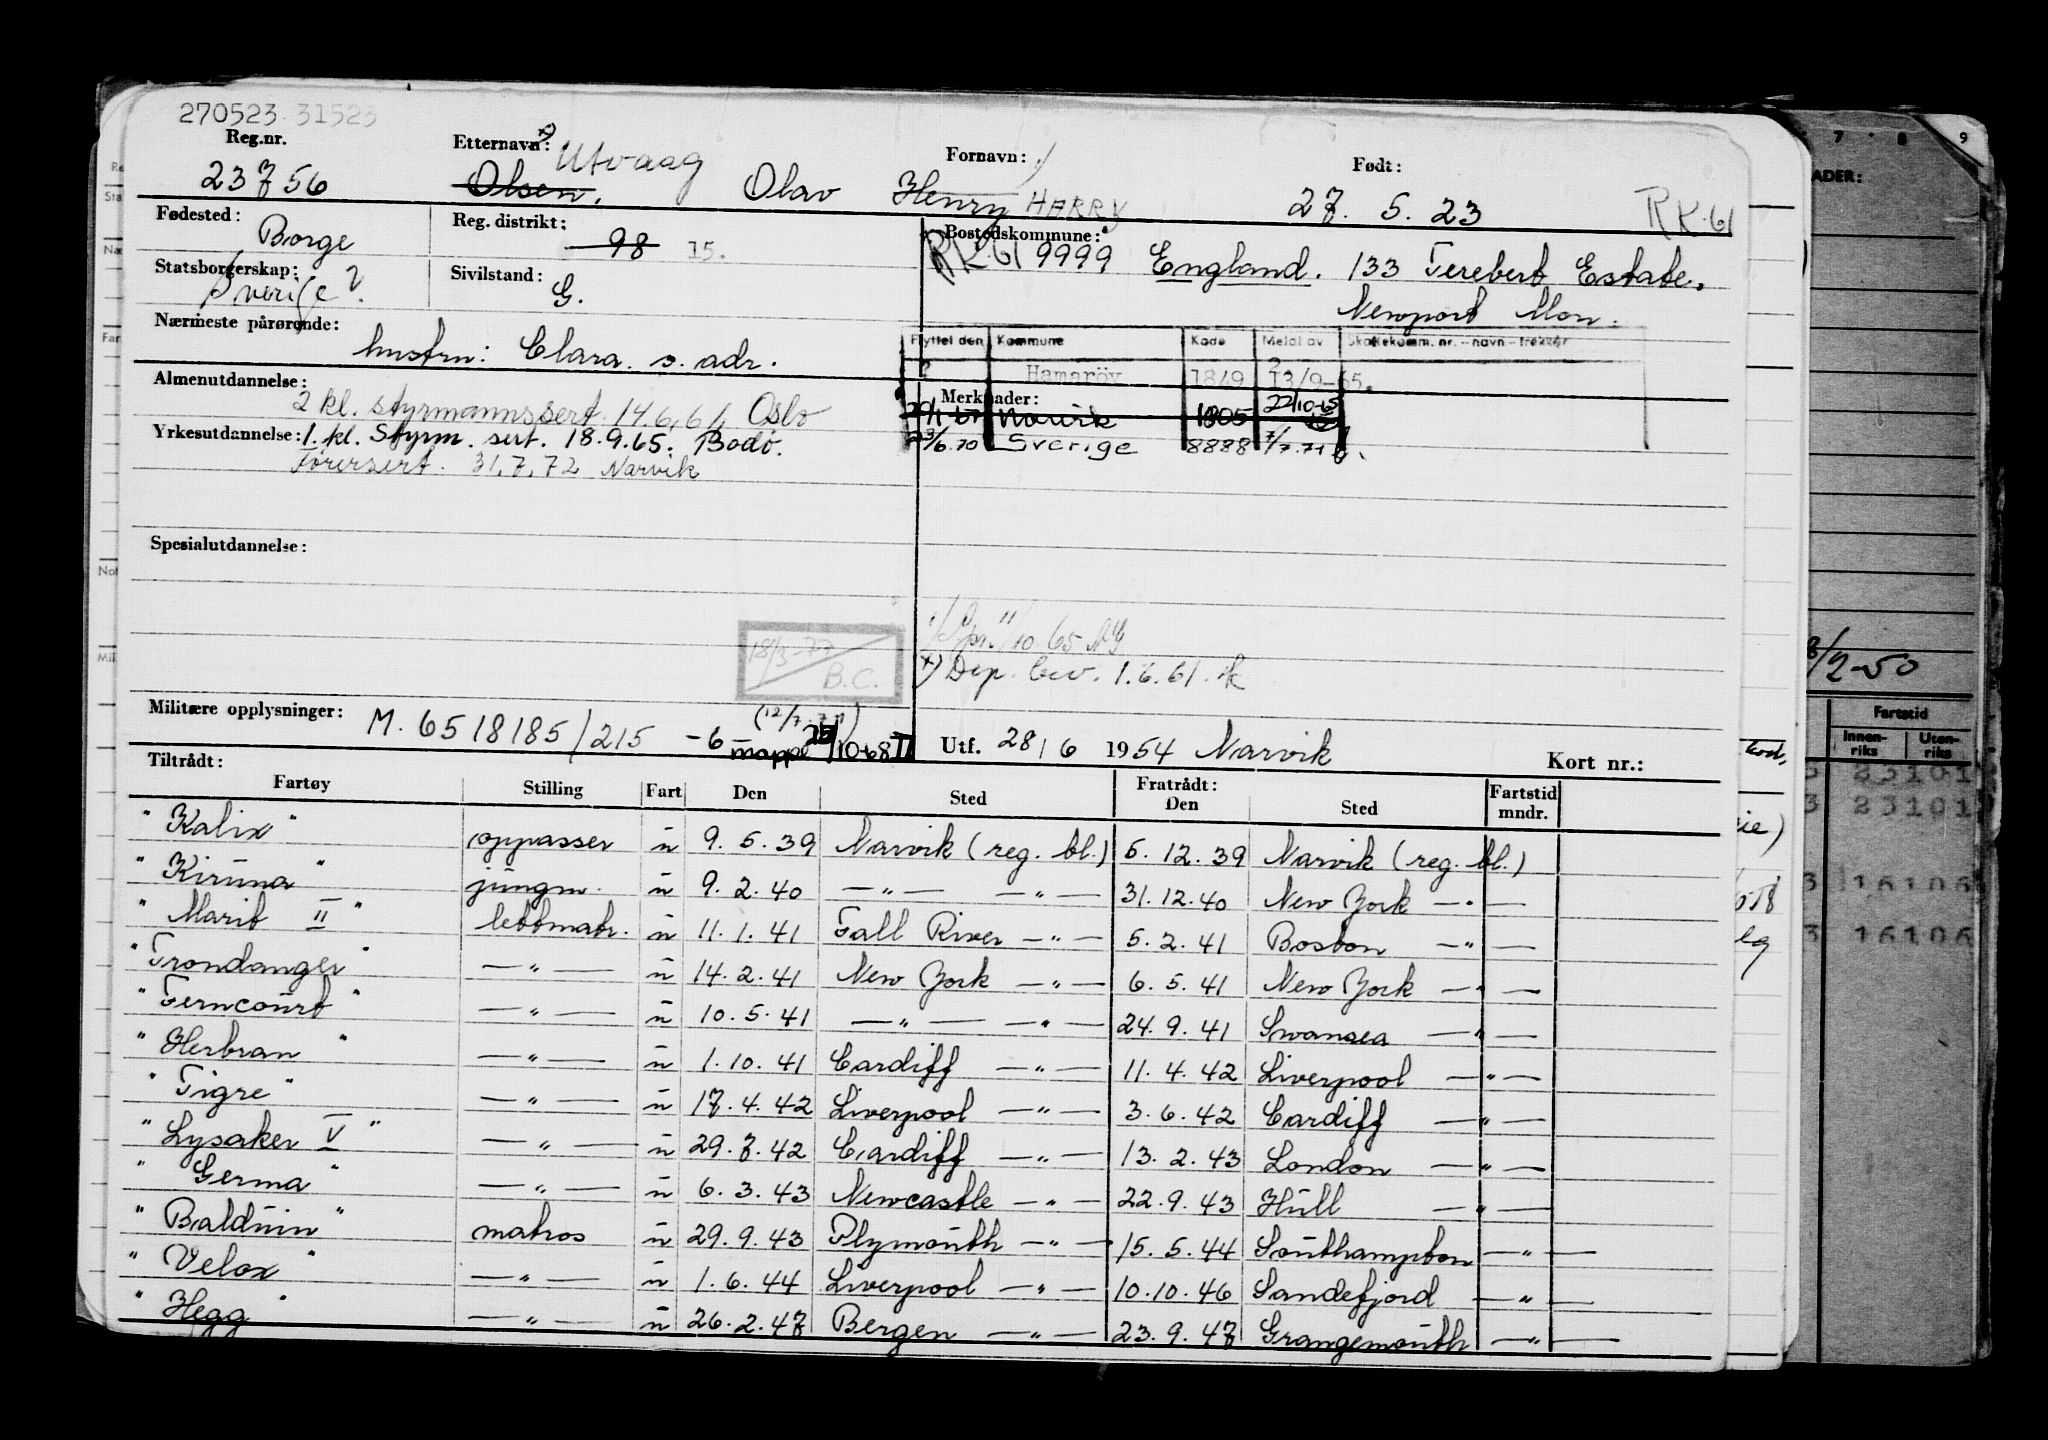 270523 31523
Reg.nr. Etternavn: x) Utvaag Fornavn: Født:
23756 Olsen, Olav Henry HARRY 27. 5. 23 RK.61
Fødested: Borge Reg. distrikt: 98 15. Bostedskommune:
RK.61 9999 England. 133 Terebert Estate,
Statsborgerskap: Sverige? Sivilstand: G. Newport Mon.
Nærmeste pårørende: hustru: Clara. s. adr.
Flyttet den Kommune Kode Meldt av Skattekomm. nr. - navn - trekkår
? Hamaröy 1849 13/9-65.
Almenutdannelse: 2 kl. styrmannssert. 14.6.61. Oslo
Merknader: Narvik 1805 22/10-65
Yrkesutdannelse: 1. kl. Styrm. sert. 18.9.65. Bodö.
23/6.70 Sverige 8888 7/7.71
Førersert. 31.7.72 Narvik
Spesialutdannelse:
18/3-77
B.C.
11/10.65
x) Dep. bev. 1.6.61.
Militære opplysninger: M. 6518185/215 -6- (12/7.71)
mappe 25/10-68 II Utf. 28/6 1954 Narvik Kort nr.:
Tiltrådt: Fratrådt:
Fartøy Stilling Fart Den Sted Den Sted Fartstid mndr.
"Kalix" oppasser u 9. 5. 39 Narvik (reg. bl.) 5. 12. 39 Narvik (reg. bl.)
"Kiruna" jungm. u 9. 2. 40 — " — — " — 31. 12. 40 New York — " —
"Marit II" lettmatr. u 11. 1. 41 Fall River — " — 5. 2. 41 Boston — " —
"Trondanger" — " — u 14. 2. 41 New York — " — 6. 5. 41 New York — " —
"Ferncourt" — " — u 10. 5. 41 — " — — " — 24. 9. 41 Swansea — " —
"Herbran" — " — u 1. 10. 41 Cardiff — " — 11. 4. 42 Liverpool — " —
"Tigre" — " — u 17. 4. 42 Liverpool — " — 3. 6. 42 Cardiff — " —
"Lysaker V" — " — u 29. 7. 42 Cardiff — " — 13. 2. 43 London — " —
"Germa" — " — u 6. 3. 43 Newcastle — " — 22. 9. 43 Hull — " —
"Balduin" matros u 29. 9. 43 Plymouth — " — 15. 5. 44 Southampton — " —
"Velox" — " — u 1. 6. 44 Liverpool — " — 10. 10. 46 Sandefjord — " —
"Hegg" — " — u 26. 2. 47 Bergen — " — 23. 9. 47 Grangemouth — " —
7 8 9
ADER:
/2-50
Fartstid
Innenriks Utenriks
23101
23101
16106
16106